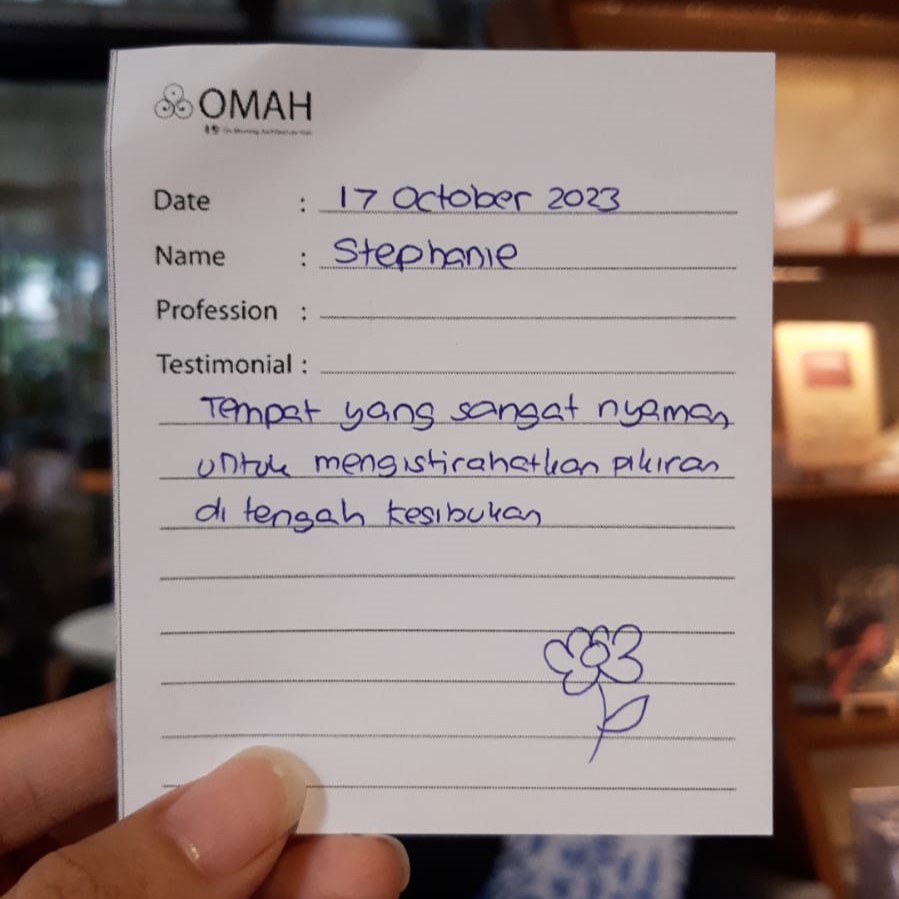 OMAH
Date : 17 October 2023
Name : Stephanie
Profession :
Testimonial :
Tempat yang sangat nyaman
untuk mengistirahatkan pikiran
di tengah kesibukan